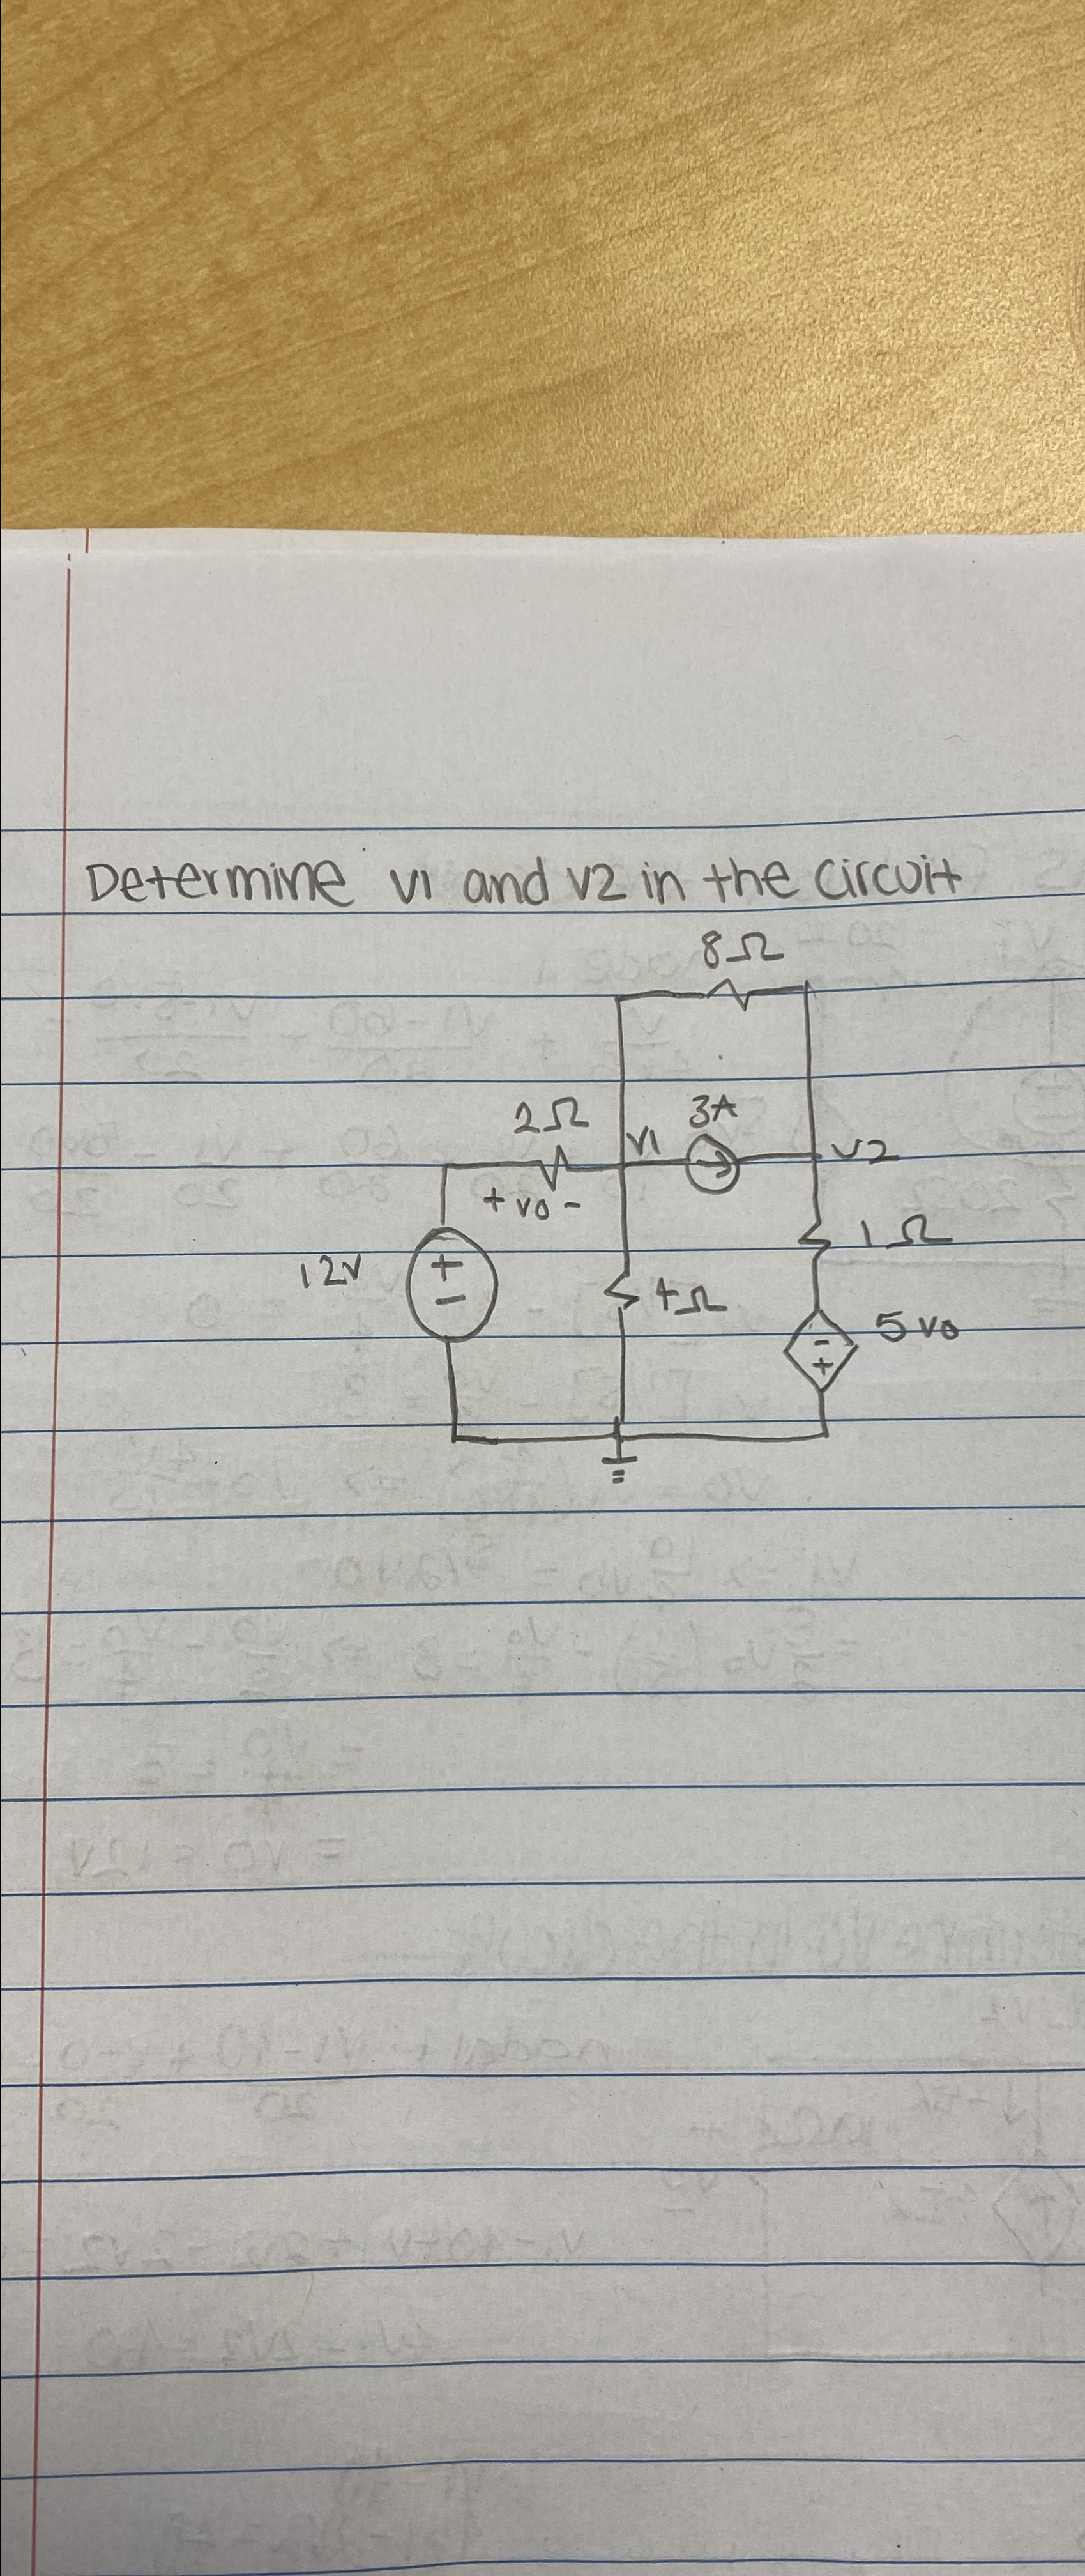 Determine v1 and v2 in the circuit
8Ω
2Ω
3A
v1
v2
+ vo -
1Ω
12V
+
-
4Ω
5vo
-
+